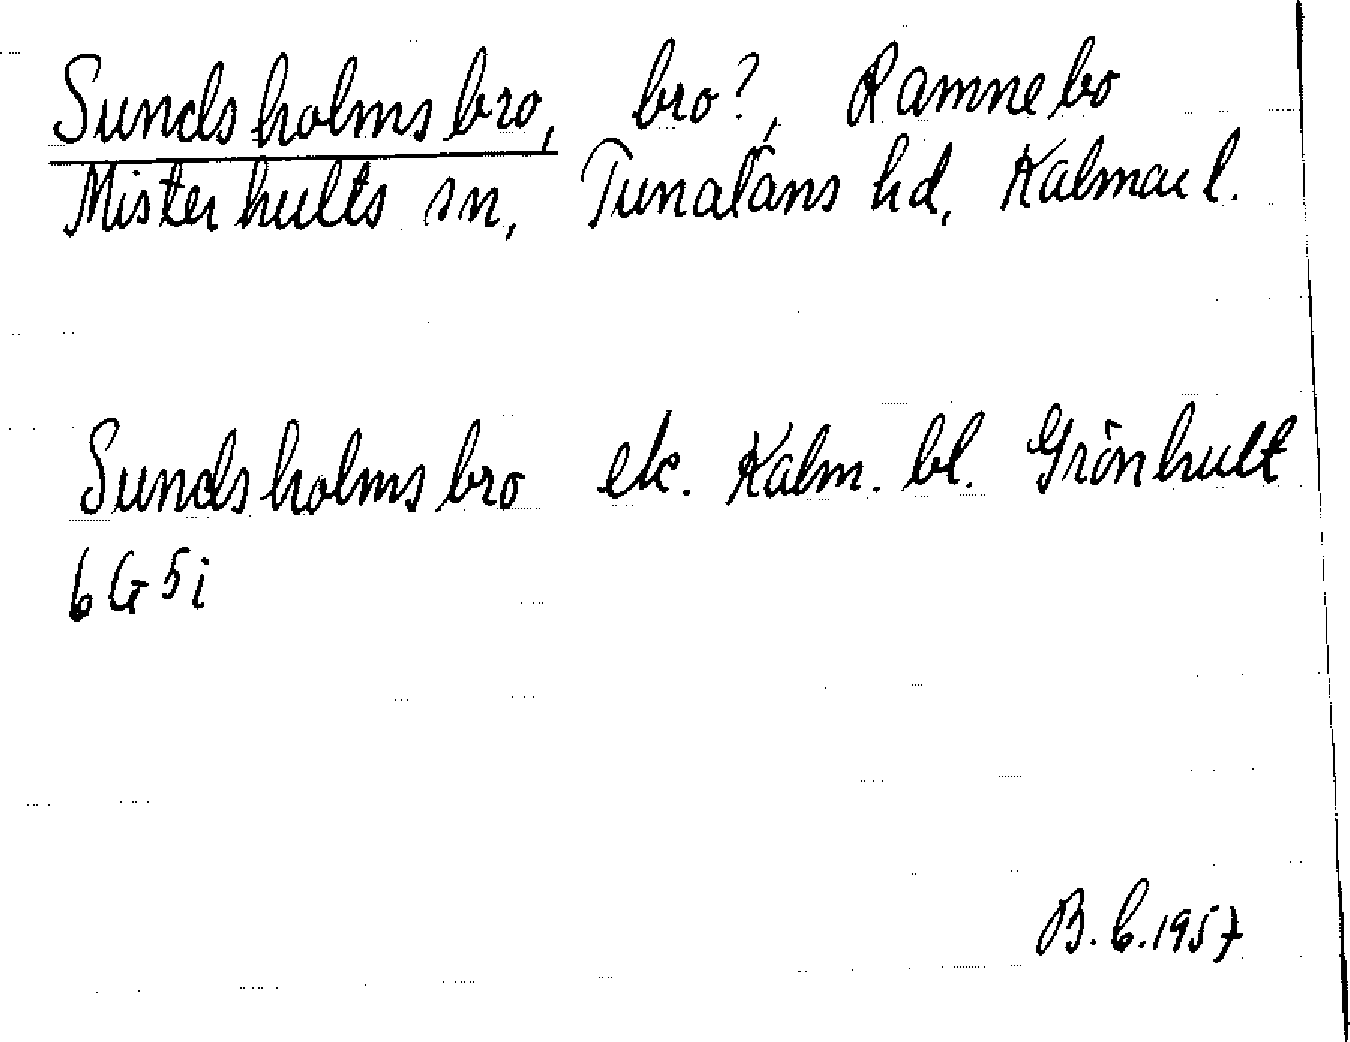 Sundsholmsbro, bro?, Ramnebo
Misterhults sn, Tunaläns hd, Kalmar l.
Sundsholmsbro ek. Kalm. bl. Grönhult
6G5i
B.6.1957